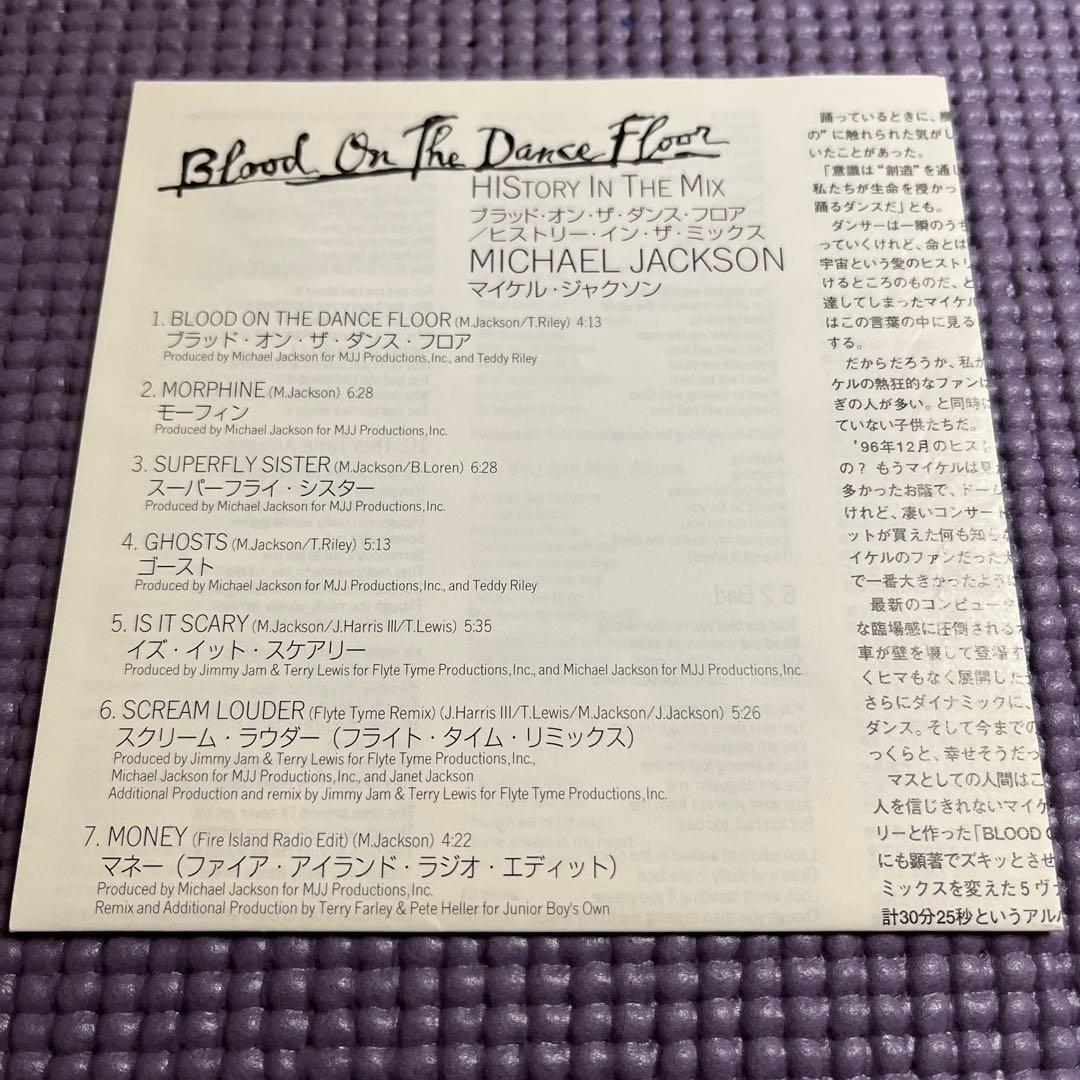 Blood On The Dance Floor
HIStory In The Mix
ブラッド・オン・ザ・ダンス・フロア
／ヒストリー・イン・ザ・ミックス
MICHAEL JACKSON
マイケル・ジャクソン
1. BLOOD ON THE DANCE FLOOR (M.Jackson/T.Riley) 4:13
ブラッド・オン・ザ・ダンス・フロア
Produced by Michael Jackson for MJJ Productions,Inc., and Teddy Riley
2. MORPHINE (M.Jackson) 6:28
モーフィン
Produced by Michael Jackson for MJJ Productions,Inc.
3. SUPERFLY SISTER (M.Jackson/B.Loren) 6:28
スーパーフライ・シスター
Produced by Michael Jackson for MJJ Productions,Inc.
4. GHOSTS (M.Jackson/T.Riley) 5:13
ゴースト
Produced by Michael Jackson for MJJ Productions,Inc., and Teddy Riley
5. IS IT SCARY (M.Jackson/J.Harris III/T.Lewis) 5:35
イズ・イット・スケアリー
Produced by Jimmy Jam & Terry Lewis for Flyte Tyme Productions,Inc., and Michael Jackson for MJJ Productions, Inc.
6. SCREAM LOUDER (Flyte Tyme Remix) (J.Harris III/T.Lewis/M.Jackson/J.Jackson) 5:26
スクリーム・ラウダー（フライト・タイム・リミックス）
Produced by Jimmy Jam & Terry Lewis for Flyte Tyme Productions,Inc.,
Michael Jackson for MJJ Productions,Inc., and Janet Jackson
Additional Production and remix by Jimmy Jam & Terry Lewis for Flyte Tyme Productions,Inc.
7. MONEY (Fire Island Radio Edit) (M.Jackson) 4:22
マネー（ファイア・アイランド・ラジオ・エディット）
Produced by Michael Jackson for MJJ Productions,Inc.
Remix and Additional Production by Terry Farley & Pete Heller for Junior Boy's Own
踊っているときに、
の”に触れられた気がし
いたことがあった。
「意識は“創造”を通し
私たちが生命を授かっ
踊るダンスだ」とも。
ダンサーは一瞬のうち
っていくけれど、命とは
宇宙という愛のヒストリ
けるところのものだ、と
達してしまったマイケル
はこの言葉の中に見る
する。
だからだろうか、私が
ケルの熱狂的なファンに
ぎの人が多い。と同時に
ていない子供たちだ。
'96年12月のヒス
の？ もうマイケルは見
多かったお蔭で、ドーム
けれど、凄いコンサート
ットが買えた何も知らな
イケルのファンだった
で一番大きかったように
最新のコンピュータ
な臨場感に圧倒される
車が壁を壊して登場す
くヒマもなく展開した
さらにダイナミックに、
ダンス。そして今までの
っくらと、幸せそうだっ
マスとしての人間はこ
人を信じきれないマイケ
リーと作った「BLOOD O
にも顕著でズキッとさせ
ミックスを変えた5ヴァ
計30分25秒というアルバ
You Are Not Alone
8. 2 Bad